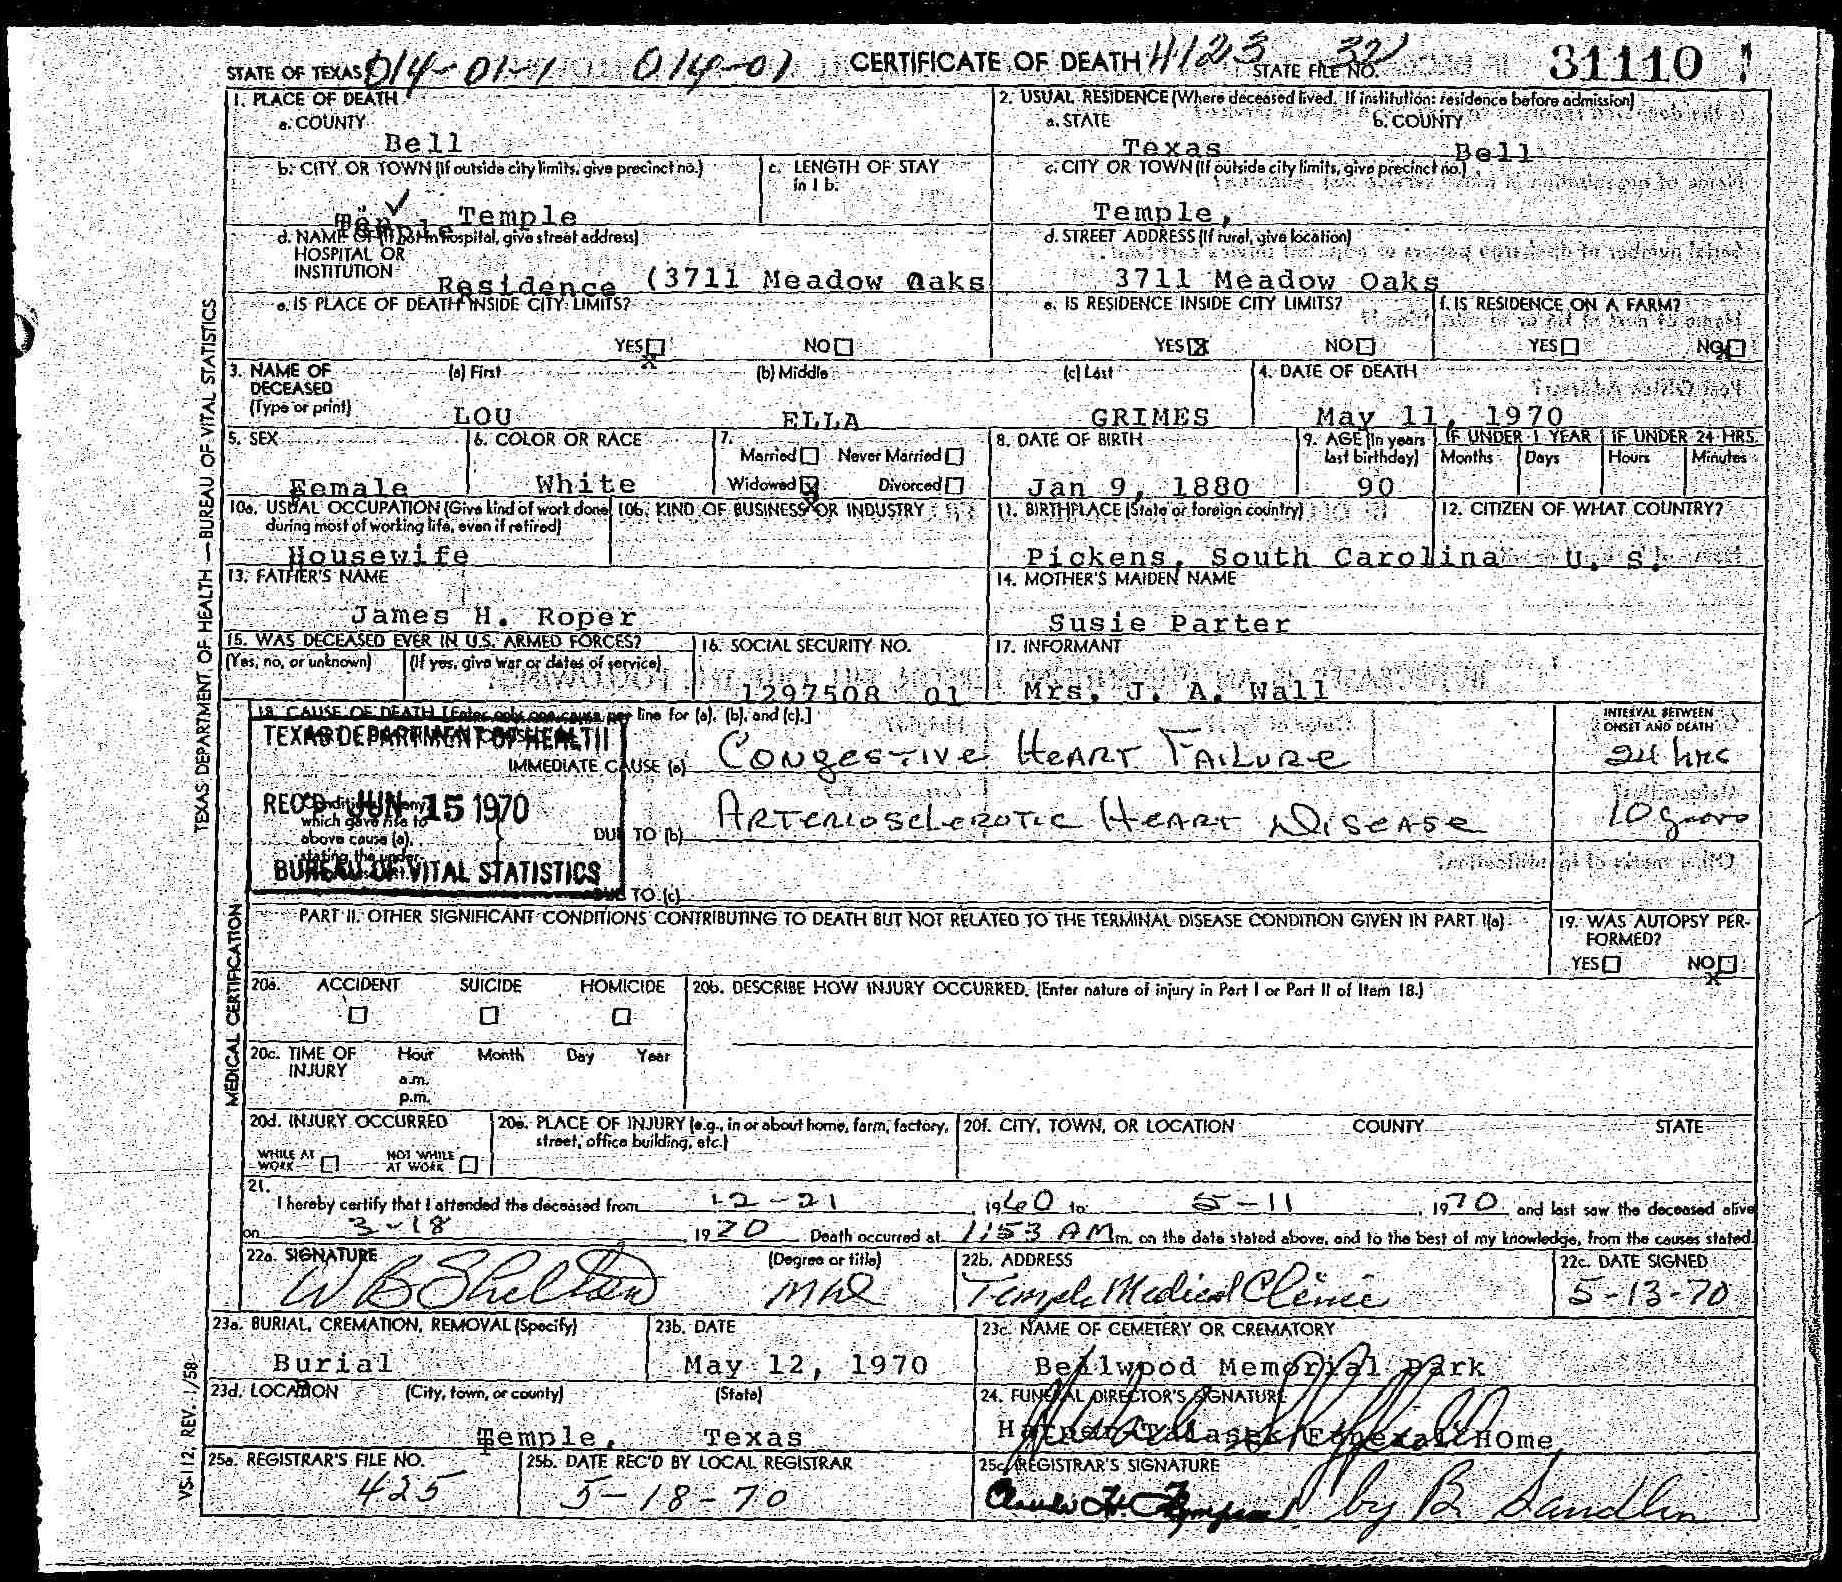 STATE OF TEXAS 014-01-1 014-01 CERTIFICATE OF DEATH 4123 STATE FILE NO. 31110
1. PLACE OF DEATH
a. COUNTY
Bell
2. USUAL RESIDENCE (Where deceased lived. If institution: residence before admission)
a. STATE b. COUNTY
Texas Bell
b. CITY OR TOWN (If outside city limits, give precinct no.)
Temple
c. LENGTH OF STAY
in 1 b.
c. CITY OR TOWN (If outside city limits, give precinct no.)
Temple,
d. NAME OF (If not in hospital, give street address)
HOSPITAL OR
INSTITUTION
Residence (3711 Meadow Oaks
d. STREET ADDRESS (If rural, give location)
3711 Meadow Oaks
e. IS PLACE OF DEATH INSIDE CITY LIMITS?
YES X NO
e. IS RESIDENCE INSIDE CITY LIMITS?
YES X NO
f. IS RESIDENCE ON A FARM?
YES NO X
3. NAME OF
DECEASED
(Type or print)
(a) First (b) Middle (c) Last
LOU ELLA GRIMES
4. DATE OF DEATH
May 11, 1970
5. SEX
Female
6. COLOR OR RACE
White
7.
Married Never Married
Widowed X Divorced
8. DATE OF BIRTH
Jan 9, 1880
9. AGE (In years
last birthday)
90
IF UNDER 1 YEAR IF UNDER 24 HRS.
Months Days Hours Minutes
10a. USUAL OCCUPATION (Give kind of work done
during most of working life, even if retired)
Housewife
10b. KIND OF BUSINESS OR INDUSTRY
11. BIRTHPLACE (State or foreign country)
Pickens, South Carolina
12. CITIZEN OF WHAT COUNTRY?
U. S.
13. FATHER'S NAME
James H. Roper
14. MOTHER'S MAIDEN NAME
Susie Parter
15. WAS DECEASED EVER IN U.S. ARMED FORCES?
(Yes, no, or unknown) (If yes, give war or dates of service)
16. SOCIAL SECURITY NO.
1297508 01
17. INFORMANT
Mrs. J. A. Wall
18. CAUSE OF DEATH [Enter only one cause per line for (a), (b), and (c).]
INTERVAL BETWEEN
ONSET AND DEATH
TEXAS DEPARTMENT OF HEALTH
REC'D JUN 15 1970
BUREAU OF VITAL STATISTICS
IMMEDIATE CAUSE (a) Congestive Heart Failure 24 hrs
Conditions, if any,
which gave rise to
above cause (a),
stating the under-
DUE TO (b) Arteriosclerotic Heart Disease 10 years
DUE TO (c)
PART II. OTHER SIGNIFICANT CONDITIONS CONTRIBUTING TO DEATH BUT NOT RELATED TO THE TERMINAL DISEASE CONDITION GIVEN IN PART I(a)
19. WAS AUTOPSY PER-
FORMED?
YES NO X
20a. ACCIDENT SUICIDE HOMICIDE
20b. DESCRIBE HOW INJURY OCCURRED. (Enter nature of injury in Part I or Part II of Item 18.)
20c. TIME OF
INJURY
Hour Month Day Year
a.m.
p.m.
20d. INJURY OCCURRED
WHILE AT
WORK
NOT WHILE
AT WORK
20e. PLACE OF INJURY (e.g., in or about home, farm, factory,
street, office building, etc.)
20f. CITY, TOWN, OR LOCATION COUNTY STATE
21.
I hereby certify that I attended the deceased from 12-21, 1960 to 5-11, 1970 and last saw the deceased alive
on 3-18, 1970 Death occurred at 1:53 AM m. on the date stated above, and to the best of my knowledge, from the causes stated.
22a. SIGNATURE (Degree or title)
W B Shelton
22b. ADDRESS
Temple Medical Clinic
22c. DATE SIGNED
5-13-70
23a. BURIAL, CREMATION, REMOVAL (Specify)
Burial
23b. DATE
May 12, 1970
23c. NAME OF CEMETERY OR CREMATORY
Bellwood Memorial Park
23d. LOCATION (City, town, or county) (State)
Temple, Texas
24. FUNERAL DIRECTOR'S SIGNATURE
Harper Talasek Funeral HOme,
25a. REGISTRAR'S FILE NO.
425
25b. DATE REC'D BY LOCAL REGISTRAR
5-18-70
25c. REGISTRAR'S SIGNATURE
by B Sandlin
TEXAS DEPARTMENT OF HEALTH — BUREAU OF VITAL STATISTICS
MEDICAL CERTIFICATION
VS-112, REV. 1/58